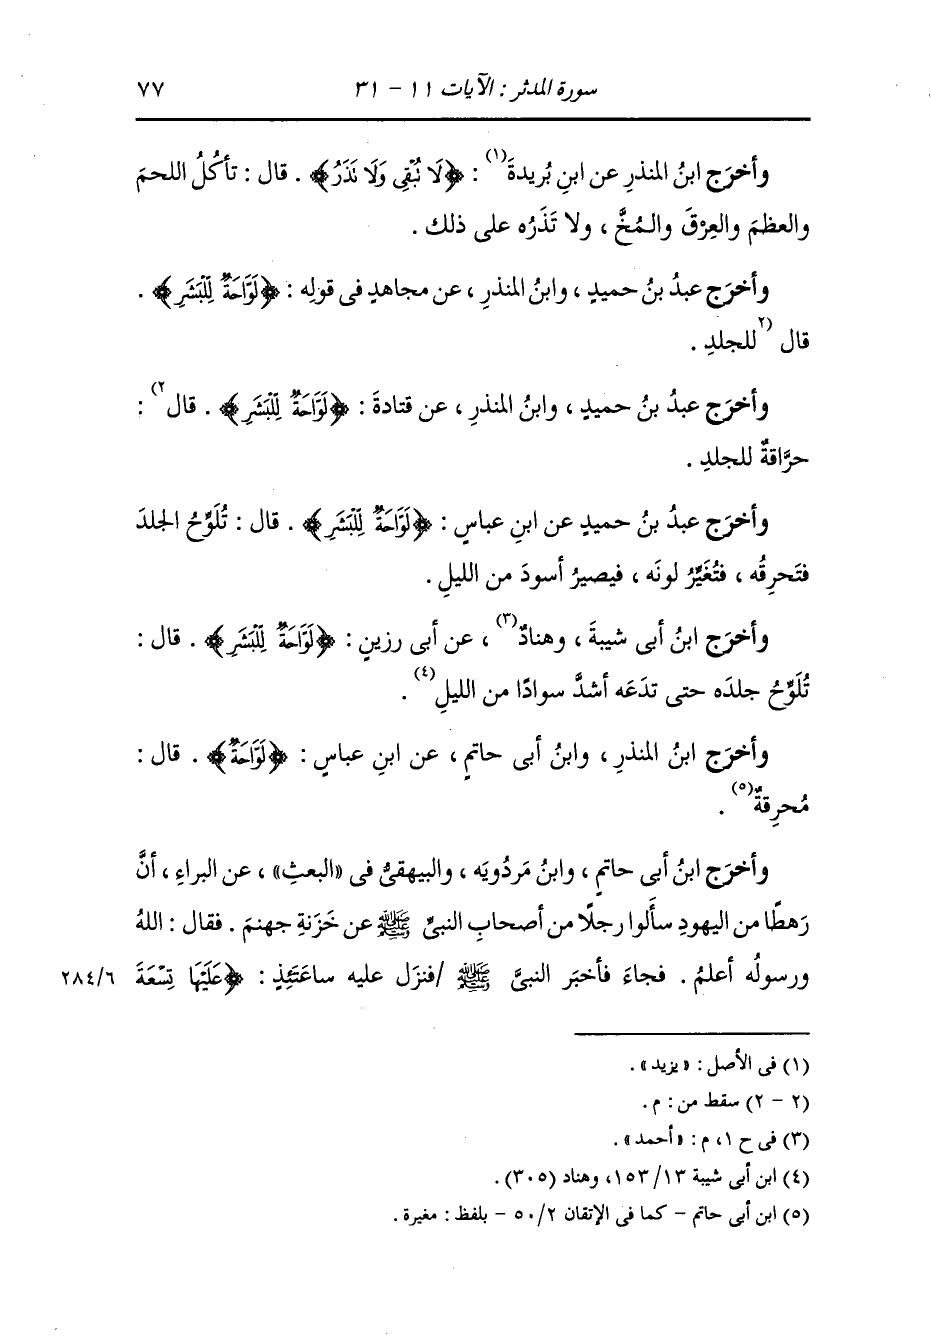 سورة المدثر : الآيات ١١ - ٣١ ٧٧
وأخرَج ابنُ المنذرِ عن ابنِ بُريدةَ(١) : ﴿لَا تُبْقِى وَلَا تَذَرُ﴾ . قال : تأكُلُ اللحمَ
والعظمَ والعِرْقَ والمُخَّ ، ولا تَذَرُه على ذلك .
وأخرَج عبدُ بنُ حميدٍ ، وابنُ المنذرِ ، عن مجاهدٍ فى قولِه : ﴿لَوَّاحَةٌ لِّلْبَشَرِ﴾ .
قال (٢للجلدِ .
وأخرَج عبدُ بنُ حميدٍ ، وابنُ المنذرِ ، عن قتادةَ : ﴿لَوَّاحَةٌ لِّلْبَشَرِ﴾ . قال٢) :
حرَّاقةٌ للجلدِ .
وأخرَج عبدُ بنُ حميدٍ عن ابنِ عباسٍ : ﴿لَوَّاحَةٌ لِّلْبَشَرِ﴾ . قال : تُلَوِّحُ الجلدَ
فتَحرِقُه ، فتُغَيِّرُ لونَه ، فيصيرُ أسودَ من الليلِ .
وأخرَج ابنُ أبى شيبةَ ، وهنادٌ(٣) ، عن أبى رزينٍ : ﴿لَوَّاحَةٌ لِّلْبَشَرِ﴾ . قال :
تُلَوِّحُ جلدَه حتى تدَعَه أشدَّ سوادًا من الليلِ(٤) .
وأخرَج ابنُ المنذرِ ، وابنُ أبى حاتمٍ ، عن ابنِ عباسٍ : ﴿لَوَّاحَةٌ﴾ . قال :
مُحرِقةٌ(٥) .
وأخرَج ابنُ أبى حاتمٍ ، وابنُ مَردُويَه ، والبيهقىُّ فى «البعثِ» ، عن البراءِ ، أنَّ
رَهطًا من اليهودِ سأَلوا رجلًا من أصحابِ النبىِّ ﷺ عن خَزَنةِ جهنمَ . فقال : اللهُ
ورسولُه أعلمُ . فجاءَ فأخبَر النبىَّ ﷺ /فنزَل عليه ساعَتَئِذٍ : ﴿عَلَيْهَا تِسْعَةَ ٢٨٤/٦
(١) فى الأصل : «يزيد» .
(٢ - ٢) سقط من : م .
(٣) فى ح ١، م : «أحمد» .
(٤) ابن أبى شيبة ١٥٣/١٣، وهناد (٣٠٥) .
(٥) ابن أبى حاتم - كما فى الإتقان ٥٠/٢ - بلفظ : مغيرة .